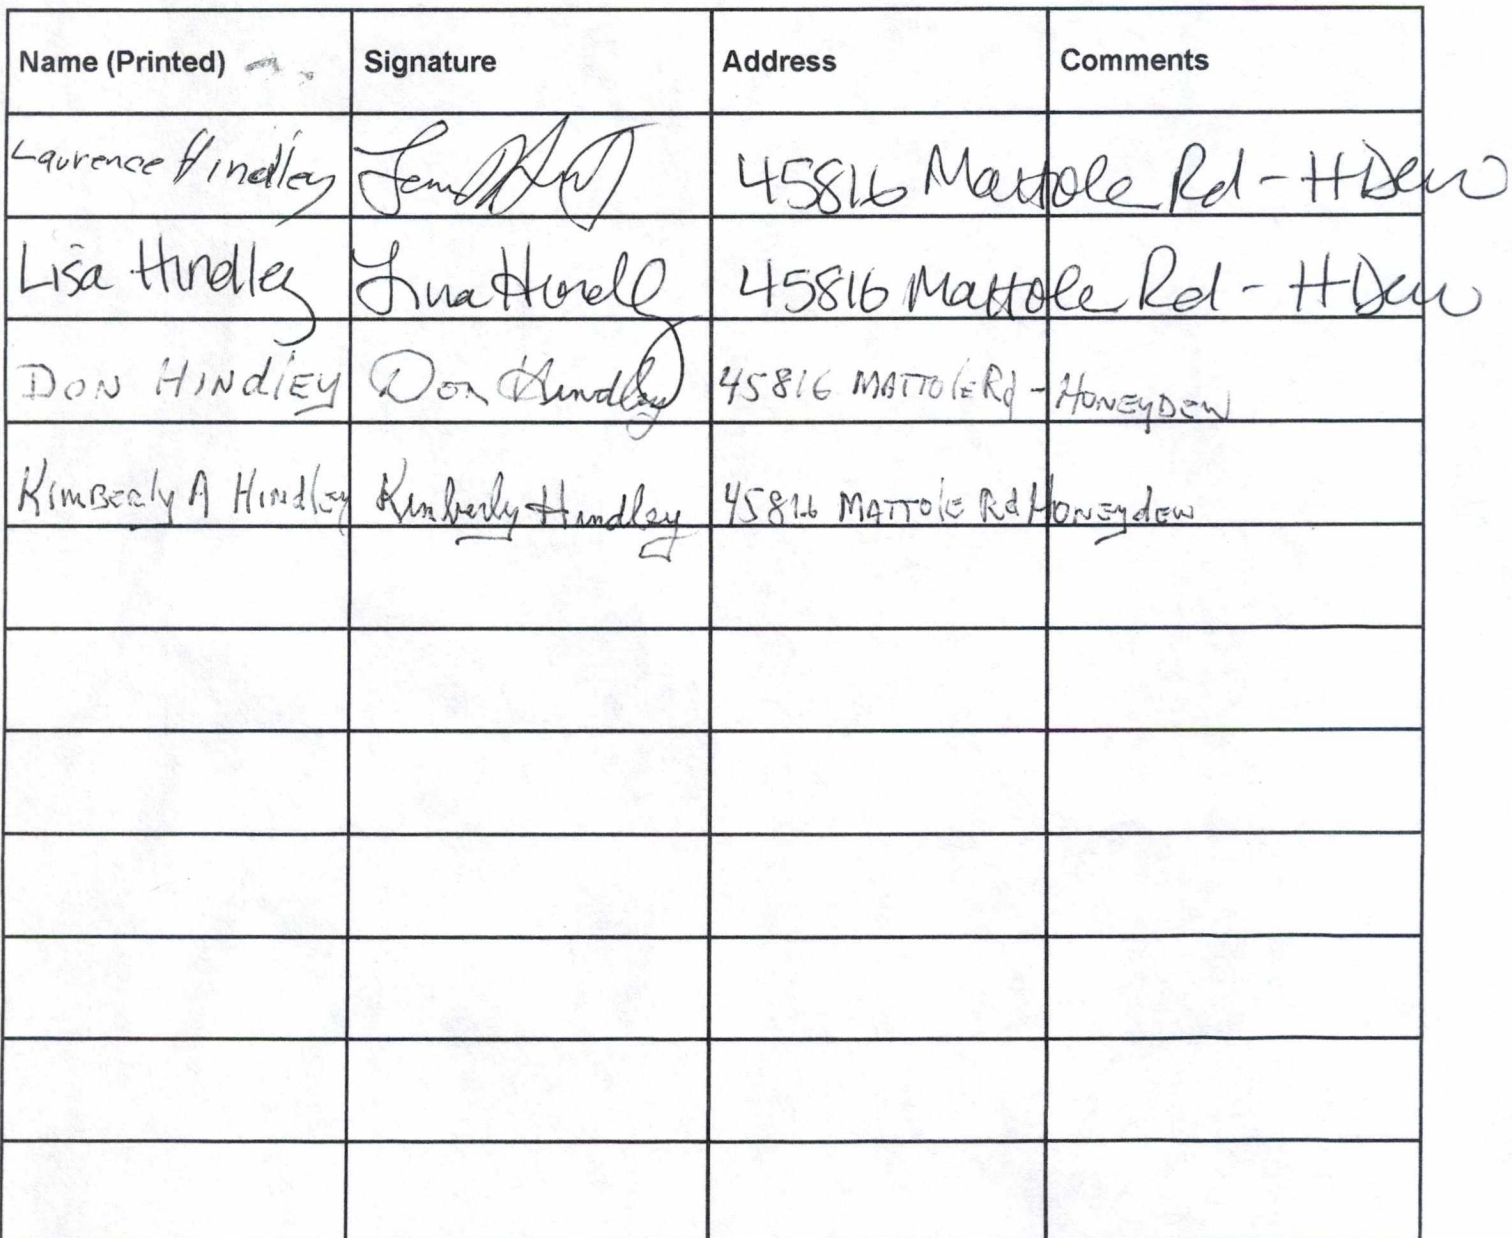 Name (Printed) Signature Address Comments
Laurence Hindley 45816 Mattole Rd - HDew
Lisa Hindley Lisa Hindley 45816 Mattole Rd - HDew
DON HINDlEY Don Hindley 45816 MATTOlE Rd - HONEYDEW
KimBerly A Hindley Kimberly Hindley 45816 MATTOlE Rd HONEydEW